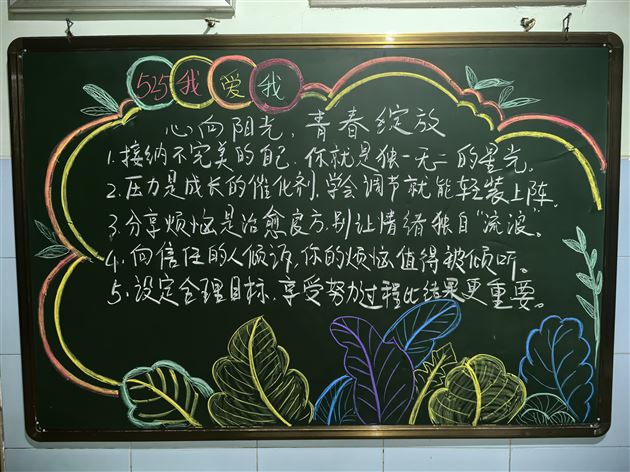 525我爱我
心向阳光，青春绽放
1.接纳不完美的自己，你就是独一无二的星光。
2.压力是成长的催化剂，学会调节就能轻装上阵。
3.分享烦恼是治愈良方，别让情绪独自“流浪”。
4.向信任的人倾诉，你的烦恼值得被倾听。
5.设定合理目标，享受努力过程比结果更重要。